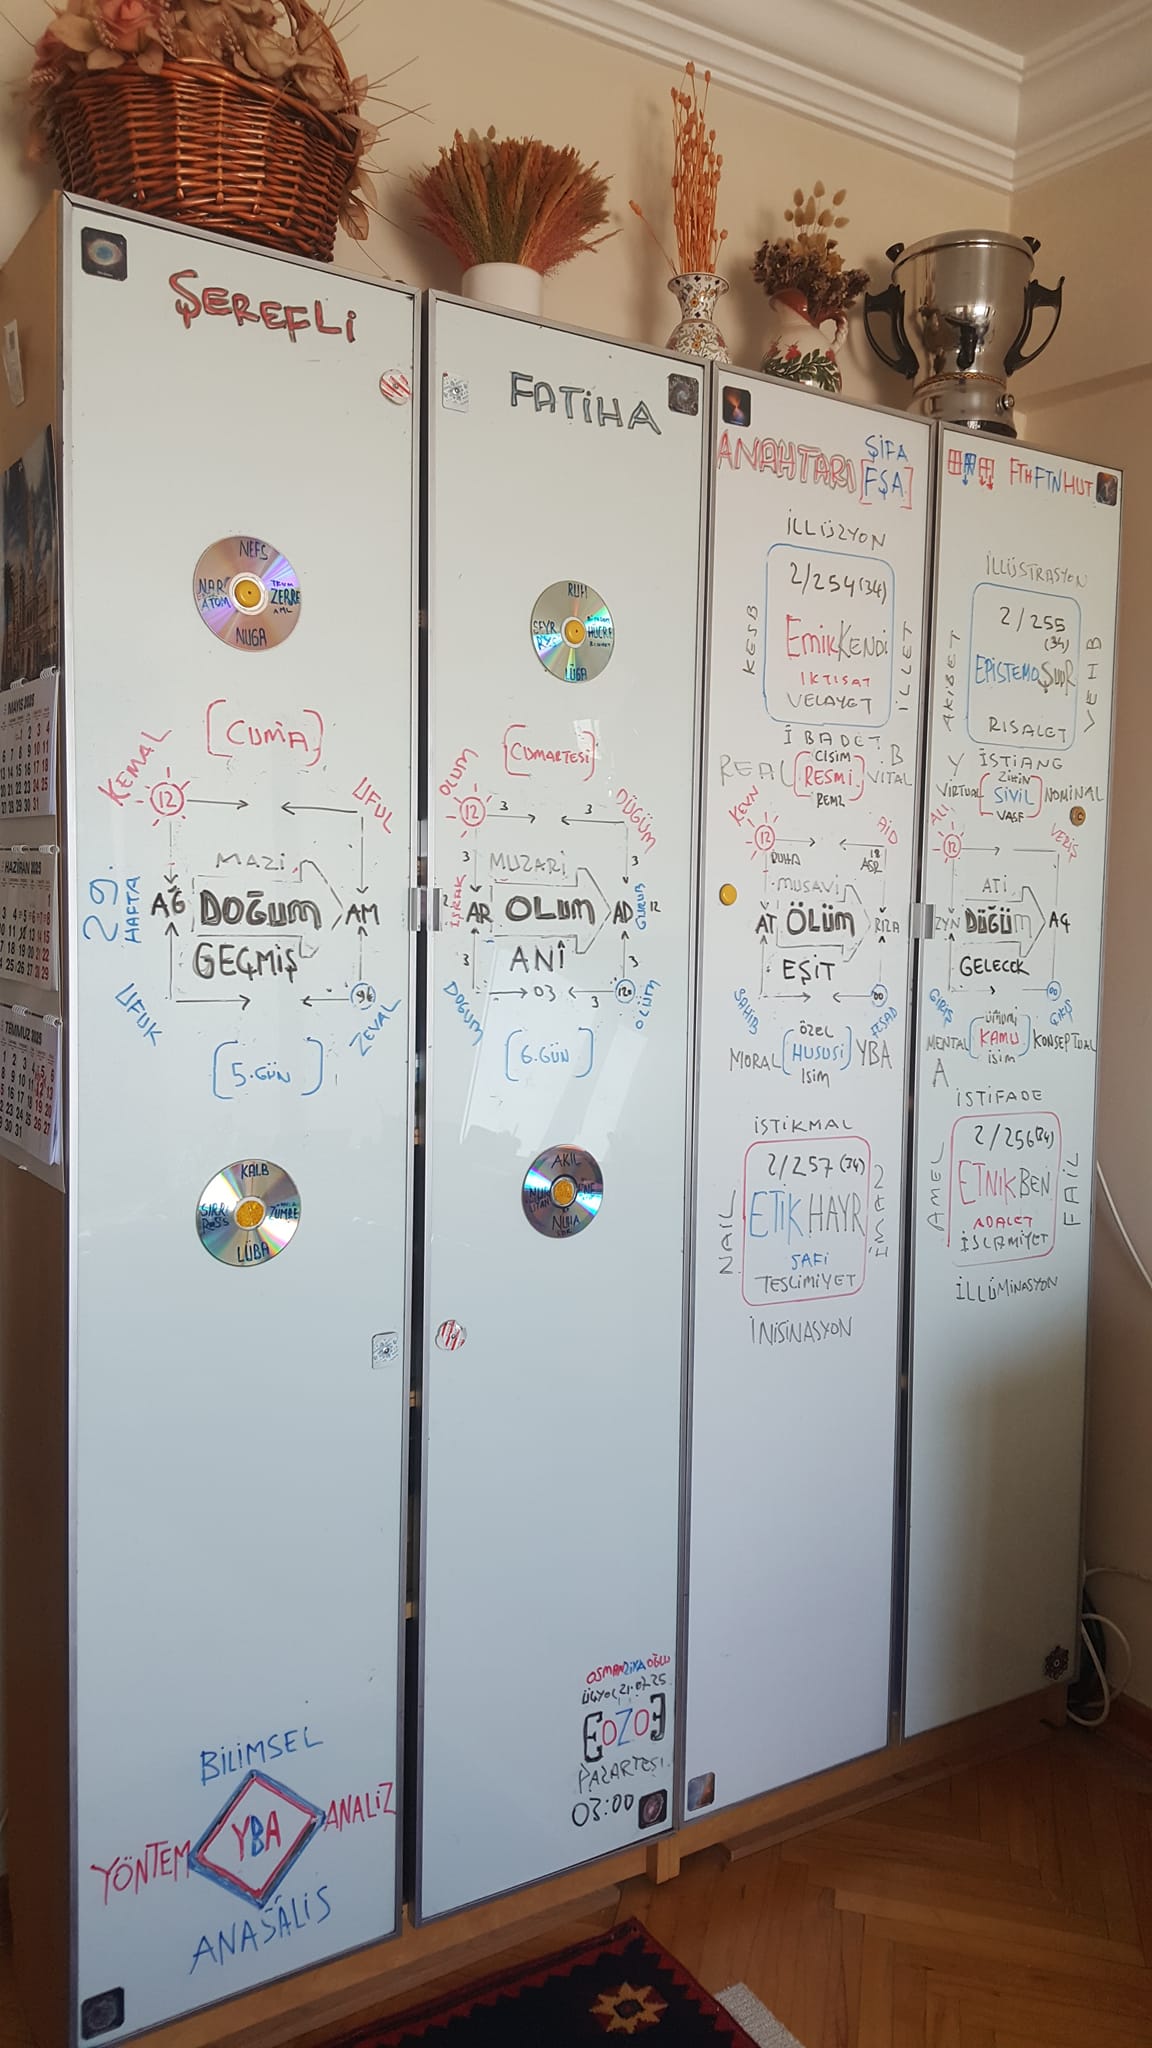 ŞEREFLİ
NEFS
ATOM
ZERRE
NUGA
[CUMA]
KEMAL
12
UFUL
MAZİ
29.
HAFTA
AĞ DOĞUM AM
GEÇMİŞ
UFUK
96
ZEVAL
[5.GÜN]
KALB
SIRRI
ZÜMRE
LÜBA
BİLİMSEL
YÖNTEM
YBA
ANALİZ
ANASÂLİS
FATİHA
RUH
SEYR
HÜCRE
LÜGA
[CUMARTESİ]
OLUM
12
3
3
DÜĞÜM
3
MUZARİ
3
İŞRAK
AR OLUM AD
GURUB
12
3
ANÎ
3
DOĞUM
03
3
120
ÖLÜM
[6.GÜN]
AKIL
NUR
NUHA
OSMANZİYAOĞLU
21.07.25
EOZOE
PAZARTESİ
03:00
ANAHTARI
ŞİFA
[FŞA]
İLLÜZYON
2/254(34)
KESB
EmikKENDİ
İKTİSAT
VELAYET
İLLET
İBADET
B
REAL
CİSİM
[RESMİ]
VİTAL
REML
KEVN
12
AID
DUHA
18
ASR
MUSAVİ
AT ÖLÜM RIZA
EŞİT
SAHİB
00
FESAD
ÖZEL
MORAL [HUSUSİ] YBA
İSİM
İSTİKMAL
2/257(34)
NAİL
ETİK HAYR
SAFİ
TESLİMİYET
İNİSİNASYON
FTHFTNHUT
İLLÜSTRASYON
2/255
(34)
AKIBET
EPİSTEMOŞUUR
RISALET
VEHB
Y
İSTİANG
ZİHİN
VİRTUAL [SİVİL] NOMINAL
VASF
ALI
12
VERİŞ
ATİ
ZYN DÜĞÜm AĞ
GELECEK
GİRİŞ
00
ÇIKIŞ
UMUMİ
MENTAL [KAMU] KONSEPTUAL
İSİM
A
İSTİFADE
2/256(34)
AMEL
ETNİK BEN
ADALET
İSLAMİYET
FAİL
İLLÜMİNASYON
MAYIS 2025
HAZİRAN 2025
TEMMUZ 2025